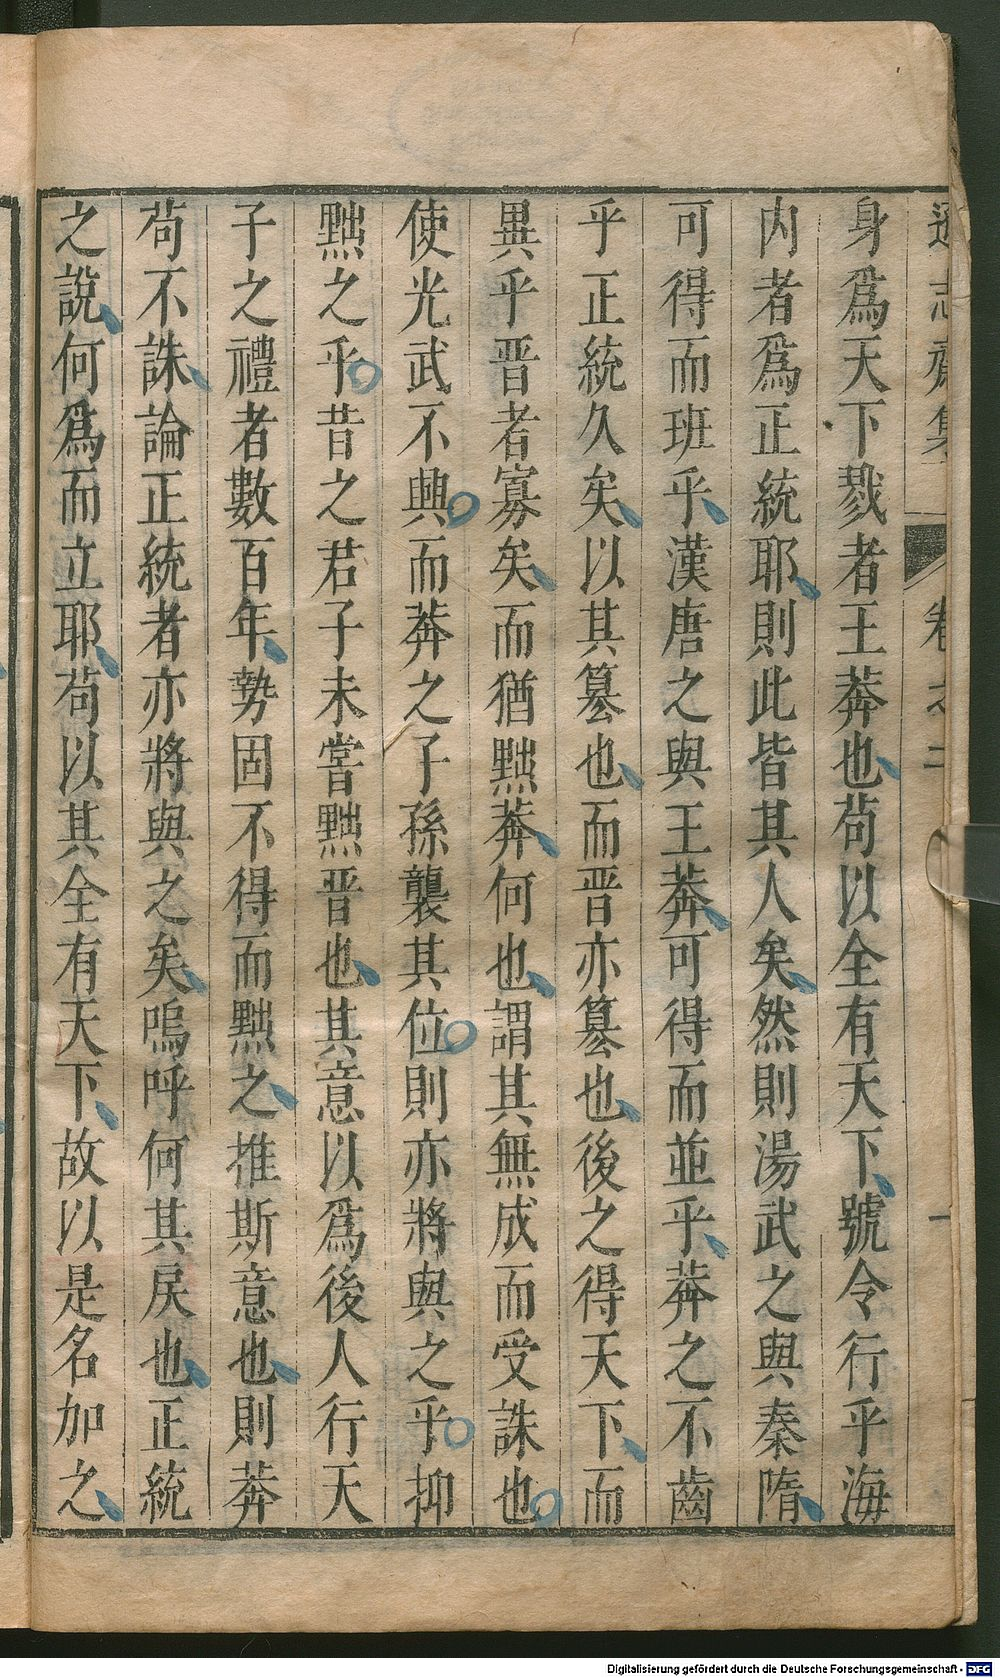 遜志齋集 卷之二 一
身爲天下戮者王莽也苟以全有天下號令行乎海
内者爲正統耶則此皆其人矣然則湯武之與秦隋
可得而班乎漢唐之與王莽可得而並乎莽之不齒
乎正統久矣以其篡也而晋亦篡也後之得天下而
異乎晋者寡矣而猶黜莽何也謂其無成而受誅也
使光武不興而莽之子孫襲其位則亦將與之乎抑
黜之乎昔之君子未嘗黜晋也其意以爲後人行天
子之禮者數百年勢固不得而黜之推斯意也則莽
苟不誅論正統者亦將與之矣嗚呼何其戾也正統
之說何爲而立耶苟以其全有天下故以是名加之
Digitalisierung gefördert durch die Deutsche Forschungsgemeinschaft - DFG